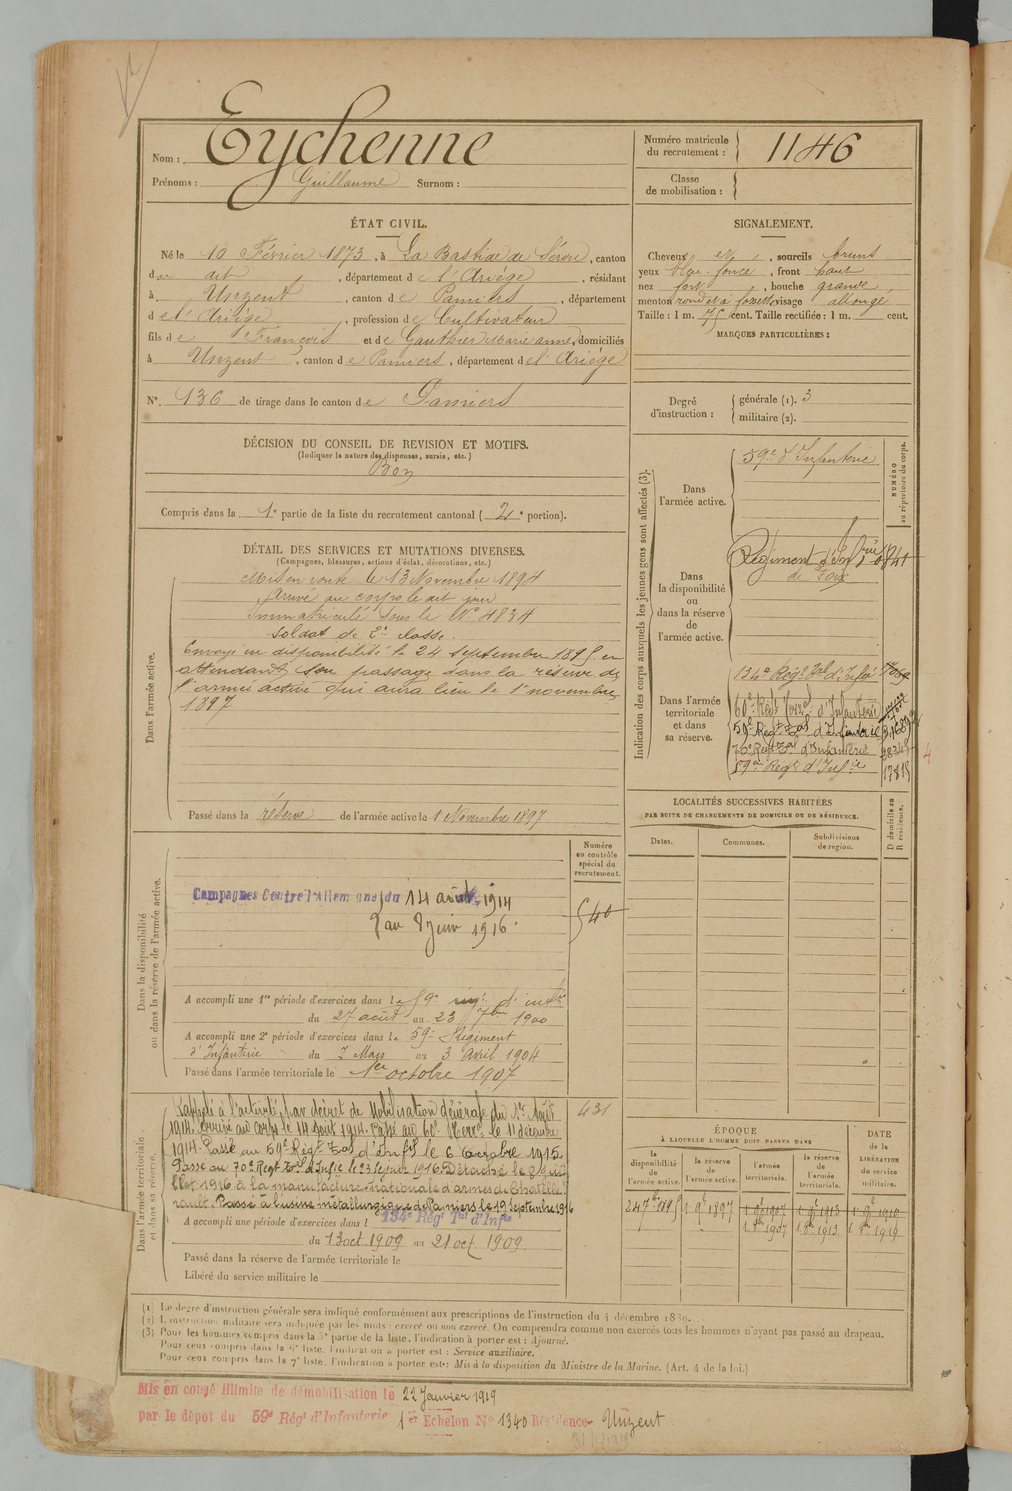 Nom : Eychenne
Prénoms : Guillaume Surnom :
Numéro matricule du recrutement : 1146
Classe de mobilisation :
ÉTAT CIVIL.
Né le 10 Février 1873, à La Bastide de Sérou, canton
du dit, département de l'Ariège, résidant
à Unzent, canton de Pamiers, département
de l'Ariège, profession de Cultivateur
fils de François et de Gauthier Marie anne, domiciliés
à Unzent, canton de Pamiers, département de l'Ariège
N° 136 de tirage dans le canton de Pamiers
SIGNALEMENT.
Cheveux et, sourcils bruns
yeux foncé, front haut
nez fort, bouche grande
menton rond et à fossette visage allongé
Taille : 1 m. 75 cent. Taille rectifiée : 1 m. cent.
MARQUES PARTICULIÈRES :
Degré d'instruction : générale (1). 3
militaire (2).
DÉCISION DU CONSEIL DE REVISION ET MOTIFS.
(Indiquer la nature des dispenses, sursis, etc.)
Bon
Compris dans la 1e partie de la liste du recrutement cantonal ( 2e portion).
DÉTAIL DES SERVICES ET MUTATIONS DIVERSES.
(Campagnes, blessures, actions d'éclat, décorations, etc.)
Dans l'armée active.
Mis en route le 13 Novembre 1894
Arrivé au corps le dit jour
Immatriculé sous le N° 4834
soldat de 2e classe.
Envoyé en disponibilité le 24 septembre 1895 en
attendant son passage dans la réserve de
l'armée active qui aura lieu le 1er novembre
1897
Passé dans la réserve de l'armée active le 1 Novembre 1897
Indication des corps auxquels les jeunes gens sont affectés (3).
NUMÉRO au répertoire du corps.
Dans l'armée active.
59e d'Infanterie
Dans la disponibilité ou dans la réserve de l'armée active.
Régiment d'Infrie
de Foix
Dans l'armée territoriale et dans sa réserve.
134e Régt Tal d'Infie
60e Régt d'Infanterie
59e Régt Tal d'Infanterie
70e Régt Tal d'Infanterie
59e Régt d'Infie 17818
4
LOCALITÉS SUCCESSIVES HABITÉES
PAR SUITE DE CHANGEMENTS DE DOMICILE OU DE RÉSIDENCE.
Dates. Communes. Subdivisions de région.
D domicile ou R résidence.
Dans la disponibilité ou dans la réserve de l'armée active.
Numéro au contrôle spécial du recrutement.
540
Campagnes Contre l'Allemagne du 14 août 1914
au 8 Juin 1916
A accompli une 1re période d'exercices dans le 59e rég. d'infie
du 27 août au 23 7bre 1900
A accompli une 2e période d'exercices dans le 59e Régiment
d'Infanterie du 7 Mars au 3 avril 1904
Passé dans l'armée territoriale le 1er octobre 1907
Dans l'armée territoriale et dans sa réserve.
431
Rappelé à l'activité par décret de Mobilisation Générale du 1er Août
1914. Arrivé au corps le 14 Août 1914. Passé au 60e le 11 décembre
1914. Passé au 59e Régt Tal d'Infie le 6 octobre 1915
Passé au 70e Régt Tal d'Infie le 1916. Détaché le 8 jui
llet 1916 à la manufacture nationale d'armes de Chatelle
rault. Passé à l'usine métallurgique de Pamiers le 19 septembre 1916
A accompli une période d'exercices dans l 134e Régt Tal d'Infie
du 13 oct. 1909 au 21 oct. 1909
Passé dans la réserve de l'armée territoriale le
Libéré du service militaire le
ÉPOQUE
À LAQUELLE L'HOMME DOIT PASSER DANS
la disponibilité de l'armée active.
la réserve de l'armée active.
l'armée territoriale.
la réserve de l'armée territoriale.
DATE de la LIBÉRATION du service militaire.
24 7bre 1895
1 9bre 1897
1 9bre 1907
1 9bre 1913
1 8bre 1907
1 8bre 1913
1 8bre 1919
(1) Le degré d'instruction générale sera indiqué conformément aux prescriptions de l'instruction du 4 décembre 1889.
(2) L'instruction militaire sera indiquée par les mots : exercé ou non exercé. On comprendra comme non exercés tous les hommes n'ayant pas passé au drapeau.
(3) Pour les hommes compris dans la 5e partie de la liste, l'indication à porter est : Ajourné.
Pour ceux compris dans la 6e liste, l'indication à porter est : Service auxiliaire.
Pour ceux compris dans la 7e liste, l'indication à porter est : Mis à la disposition du Ministre de la Marine. (Art. 4 de la loi.)
Mis en congé illimité de démobilisation le 22 Janvier 1919
par le dépôt du 59e Régt d'Infanterie 1er Échelon N° 1340 Résidence Unzent